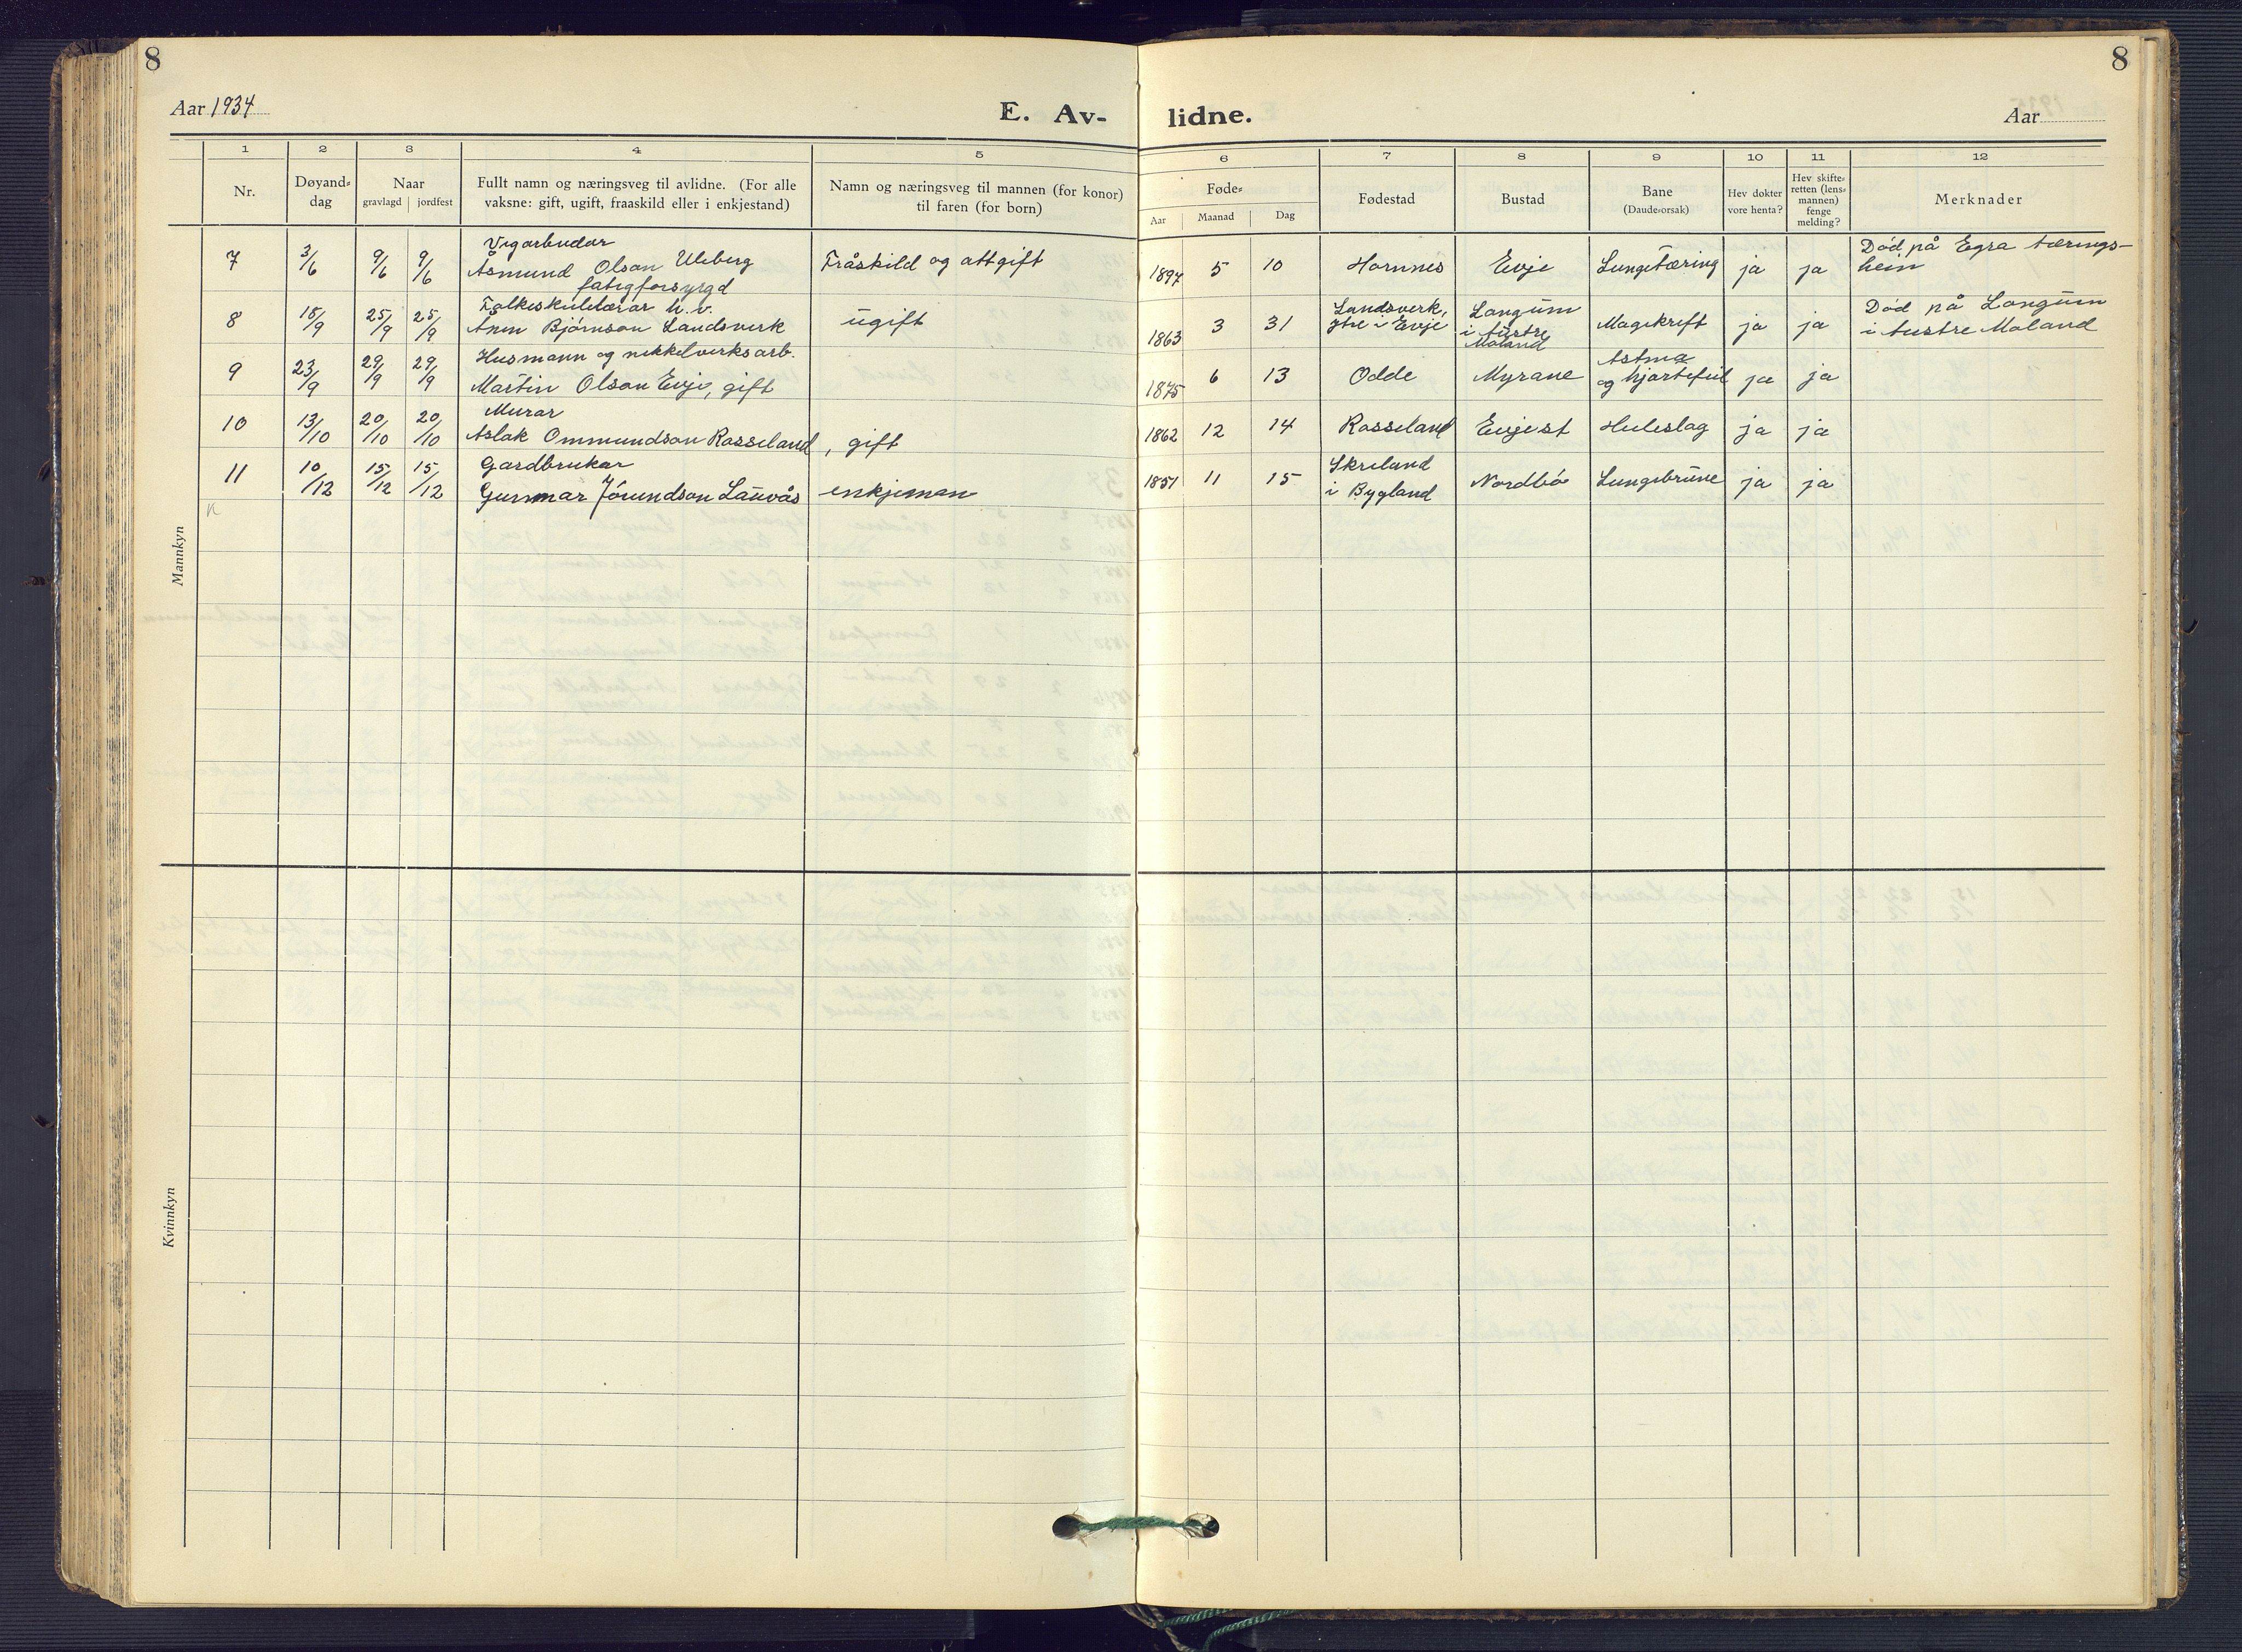 8
8
Aar 1934
E. Av-
lidne.
Aar
1
2
3
4
5
6
7
8
9
10
11
12
Nr.
Døyand-
dag
Naar
gravlagd
jordfest
Fullt namn og næringsveg til avlidne. (For alle
vaksne: gift, ugift, fraaskild eller i enkjestand)
Namn og næringsveg til mannen (for konor)
til faren (for born)
Føde-
Aar
Maanad
Dag
Fødestad
Bustad
Bane
(Daude-orsak)
Hev dokter
vore henta?
Hev skifte-
retten (lens-
mannen)
fenge
melding?
Merknader
Mannkyn
Vegarbudar
7 3/6 9/6 9/6 Åsmund Olson Uleberg Fråskild og attgift 1897 5 10 Hornnes Evje Lungetæring ja ja Død på Egra tærings-
hein
fatigforsyrgd
Folkeskulelærar h.v.
8 18/9 25/9 25/9 Ånen Bjørnson Landsverk ugift 1863 3 31 Landsverk,
ytre i Evje
Langum
i Austre
Moland
Magekreft ja ja Død på Langum
i Austre Moland
Husmann og nikkelverksarb.
9 23/9 29/9 29/9 Martin Olson Evje, gift 1875 6 13 Odde Myrane Astma
og hjartefeil ja ja
Murar
10 13/10 20/10 20/10 Aslak Ommundson Rosseland, gift 1862 12 14 Rosseland Evje st Heleslag ja ja
Gardbrukar
11 10/12 15/12 15/12 Gunnar Jórundson Lauvås enkjeman 1851 11 15 Skreland
i Bygland
Nordbø Lungebrune ja ja
Kvinnkyn